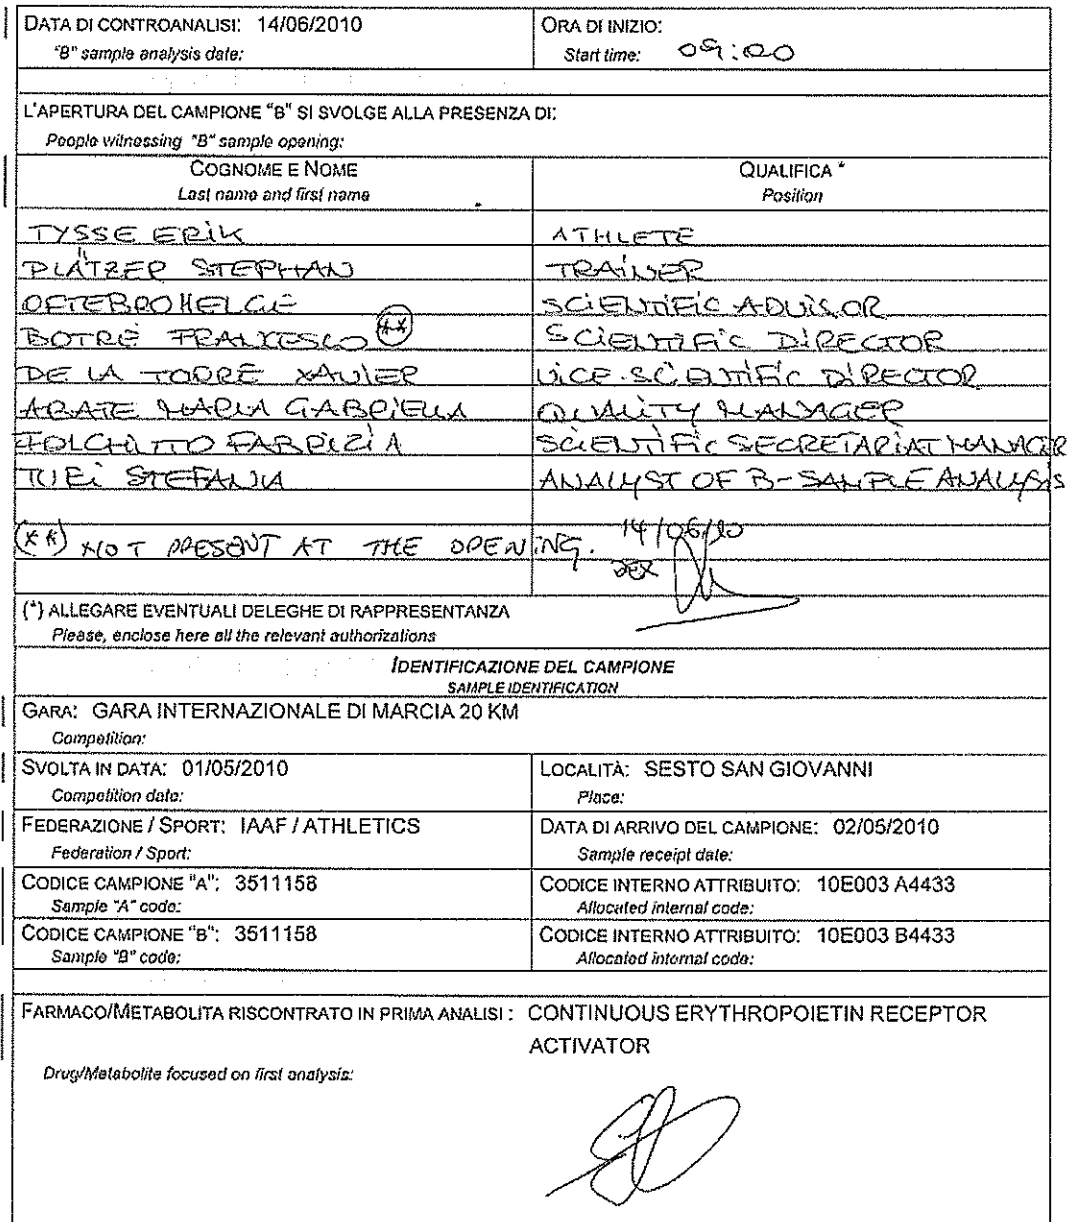 DATA DI CONTROANALISI: 14/06/2010 ORA DI INIZIO:
"B" sample analysis date: Start time: 09:00
L'APERTURA DEL CAMPIONE "B" SI SVOLGE ALLA PRESENZA DI:
People witnessing "B" sample opening:
COGNOME E NOME QUALIFICA *
Last name and first name Position
TYSSE ERIK ATHLETE
PLÄTZER STEPHAN TRAINER
OFTEBRO HELGE SCIENTIFIC ADVISOR
BOTRÈ FRANCESCO (**) SCIENTIFIC DIRECTOR
DE LA TORRE XAVIER VICE-SCIENTIFIC DIRECTOR
ABATE MARIA GABRIELLA QUALITY MANAGER
FOLCHITTO FABRIZIA SCIENTIFIC SECRETARIAT MANAGER
TURI STEFANIA ANALYST OF B-SAMPLE ANALYSIS
(**) NOT PRESENT AT THE OPENING. 14/06/10
(*) ALLEGARE EVENTUALI DELEGHE DI RAPPRESENTANZA
Please, enclose here all the relevant authorizations
IDENTIFICAZIONE DEL CAMPIONE
SAMPLE IDENTIFICATION
GARA: GARA INTERNAZIONALE DI MARCIA 20 KM
Competition:
SVOLTA IN DATA: 01/05/2010 LOCALITÀ: SESTO SAN GIOVANNI
Competition date: Place:
FEDERAZIONE / SPORT: IAAF / ATHLETICS DATA DI ARRIVO DEL CAMPIONE: 02/05/2010
Federation / Sport: Sample receipt date:
CODICE CAMPIONE "A": 3511158 CODICE INTERNO ATTRIBUITO: 10E003 A4433
Sample "A" code: Allocated internal code:
CODICE CAMPIONE "B": 3511158 CODICE INTERNO ATTRIBUITO: 10E003 B4433
Sample "B" code: Allocated internal code:
FARMACO/METABOLITA RISCONTRATO IN PRIMA ANALISI : CONTINUOUS ERYTHROPOIETIN RECEPTOR
ACTIVATOR
Drug/Metabolite focused on first analysis: